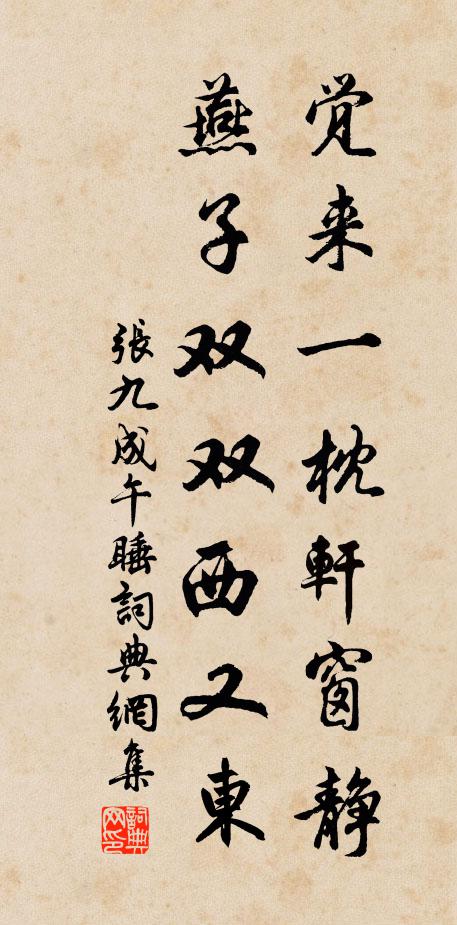 觉来一枕轩窗静
燕子双双西又東
張九成午睡詞典網集
詞典网印